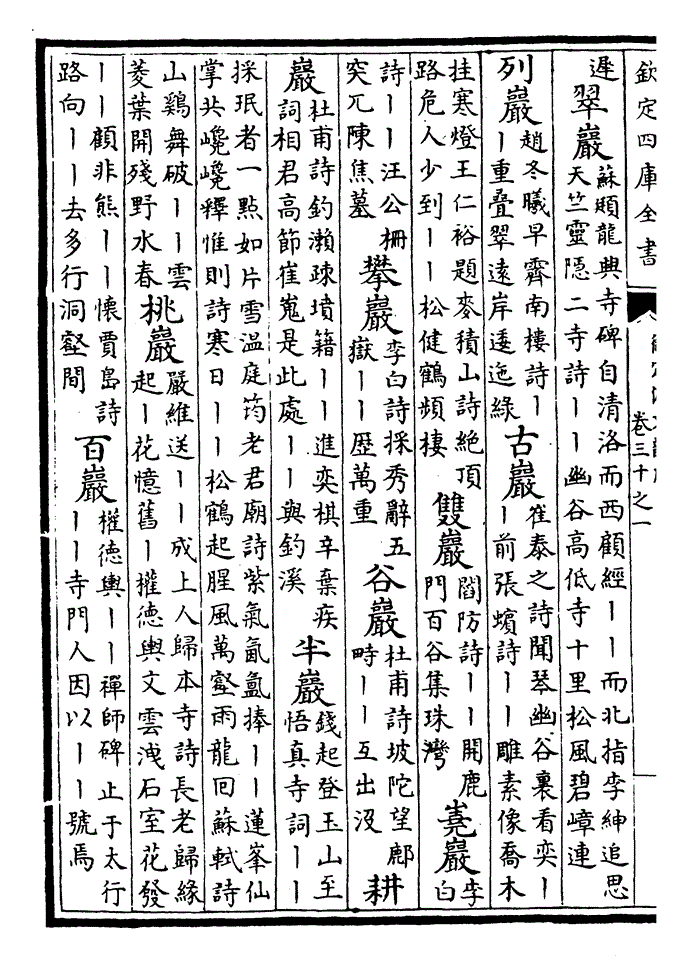 欽定四庫全書
卷三十之一
遲
翠巖
蘇頲龍興寺碑自清洛而西顧經丨丨而北指李紳追思
天竺靈隱二寺詩丨丨幽谷高低寺十里松風碧嶂連
列巖
趙冬曦早霽南樓詩丨
丨重疊翠遠岸逶迤綠
古巖
崔泰之詩聞琴幽谷裏看奕丨
丨前張蠙詩丨丨雕素像喬木
挂寒燈王仁裕題麥積山詩絶頂
路危人少到丨丨松健鶴頻棲
雙巖
閻防詩丨丨開鹿
門百谷集珠灣
嶤巖
李
白
詩丨丨汪公柵
突兀陳焦墓
攀巖
李白詩採秀辭五
嶽丨丨歴萬重
谷巖
杜甫詩坡陀望鄜
畤丨丨互出沒
耕
巖
杜甫詩釣瀨疎墳籍丨丨進奕棋辛棄疾
詞相君高節崔嵬是此處丨丨與釣溪
半巖
錢起登玉山至
悟真寺詞丨丨
採珉者一點如片雪溫庭筠老君廟詩紫氣氤氲捧丨丨蓮峯仙
掌共巉巉釋惟則詩寒日丨丨松鶴起腥風萬壑雨龍回蘇軾詩
山鷄舞破丨丨雲
菱葉開殘野水春
桃巖
嚴維送丨丨成上人歸本寺詩長老歸緣
起丨花憶舊丨權德輿文雲洩石室花發
丨丨顧非熊丨丨懷賈島詩
路向丨丨去多行洞壑間
百巖
權德輿丨丨禪師碑止于太行
丨丨寺門人因以丨丨號焉